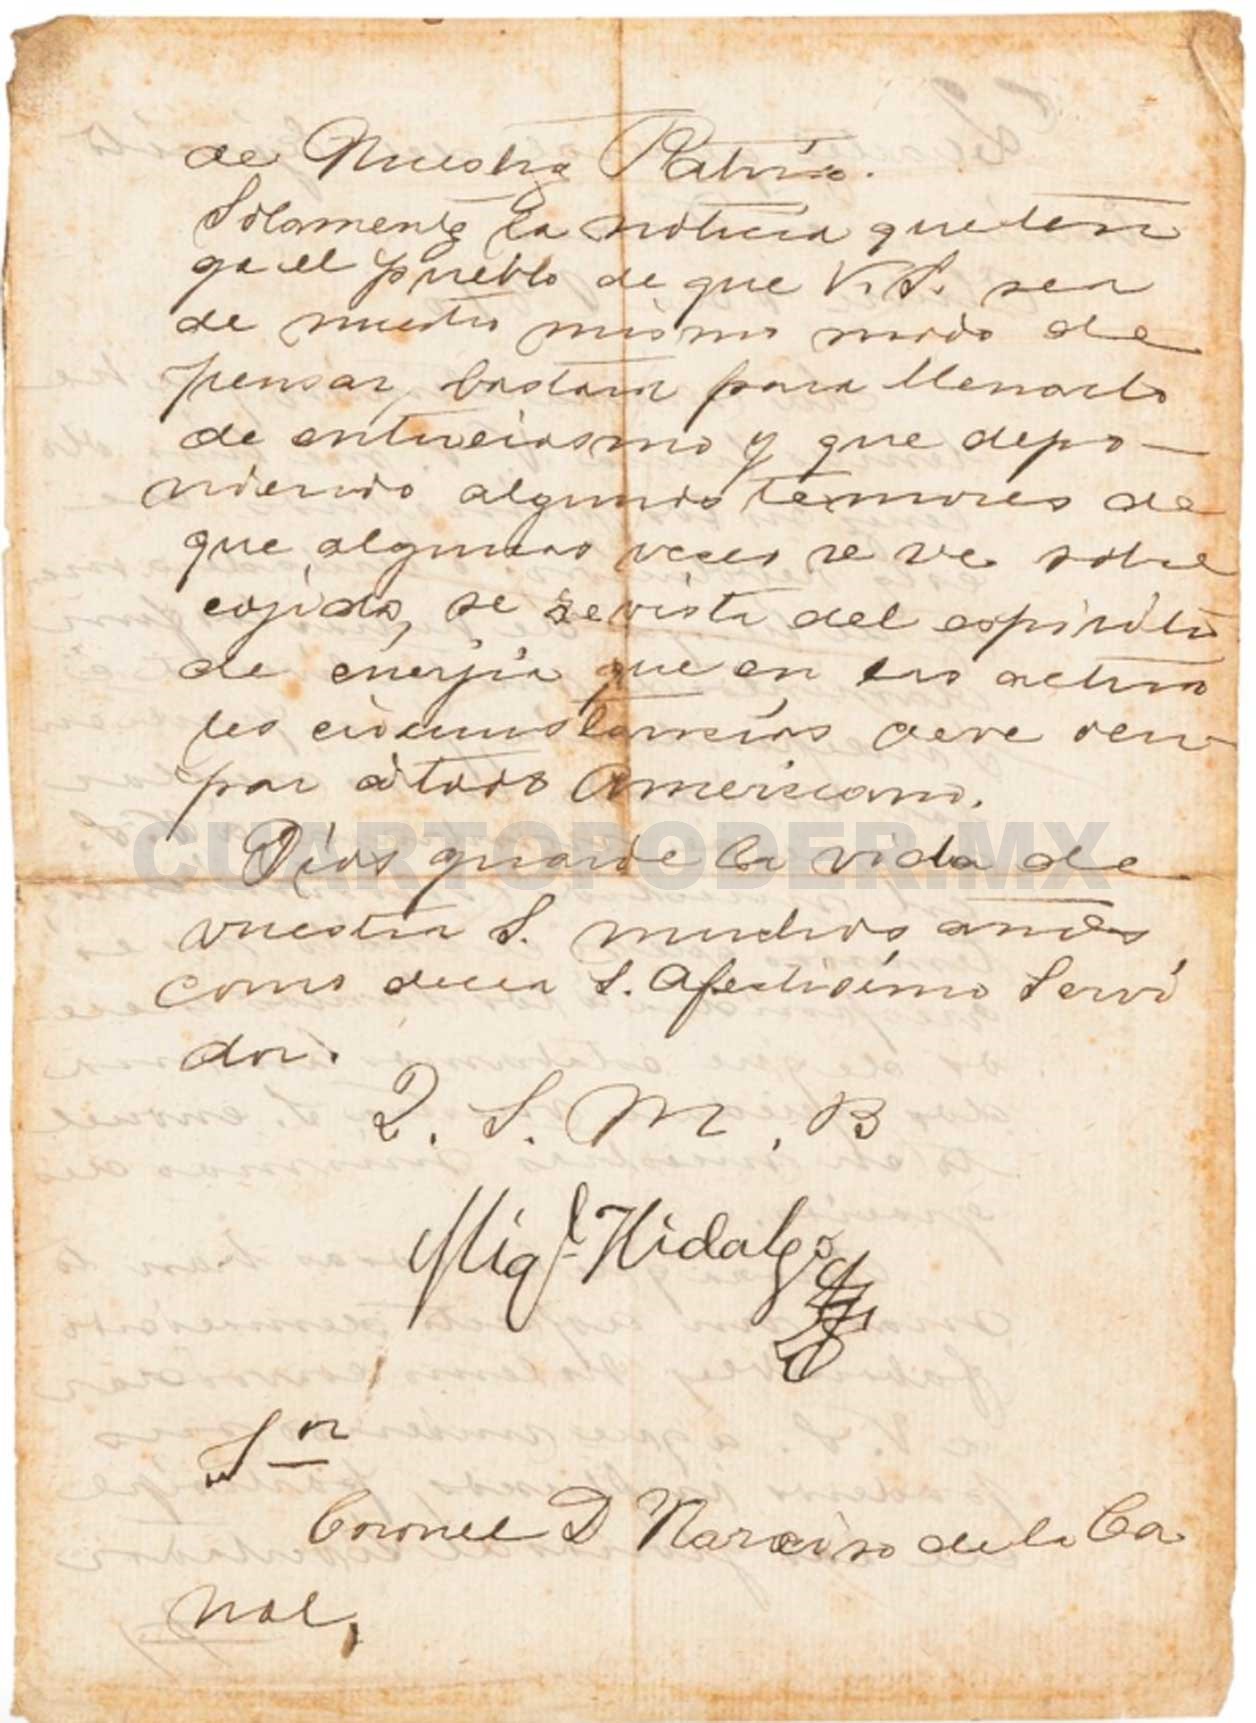 de Nuestra Patria.
Solamente la noticia que ten
ga el pueblo de que V. S. sea
de nuestro mismo modo de
pensar, bastara para llenarlo
de entuciasmo y que depo-
niendo algunos temores de
que algunas veces se ve sobre
cojido, se revista del espiritu
de enerjia que en las actua
les cicunstancias deve ocu
par á todo Americano.
CUARTOPODER.MX
Dios guarde la vida de
vuestra S. muchos años
como decea S. Afectisimo Servi
dor.
Q. S. M. B
Migl. Hidalgo
Sor
Coronel D Narciso de la Ca
nal,